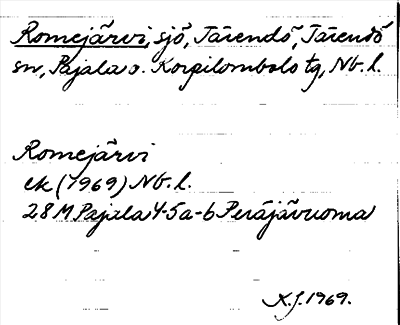 Romejärvi, sjö, Tärendö, Tärendö
sn, Pajala o. Korpilombolo tg, Nb. l.
Romejärvi
ek (1969) Nb. l.
28 M Pajala 4-5a-b Peräjävuoma
K.J. 1969.